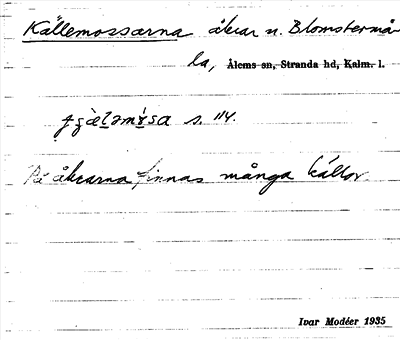 Källemossarna åkrar n. Blomstermå-
la, Ålems sn, Stranda hd, Kalm. l.
s. 114.
På åkrarna finnas många källor.
Ivar Modéer 1935